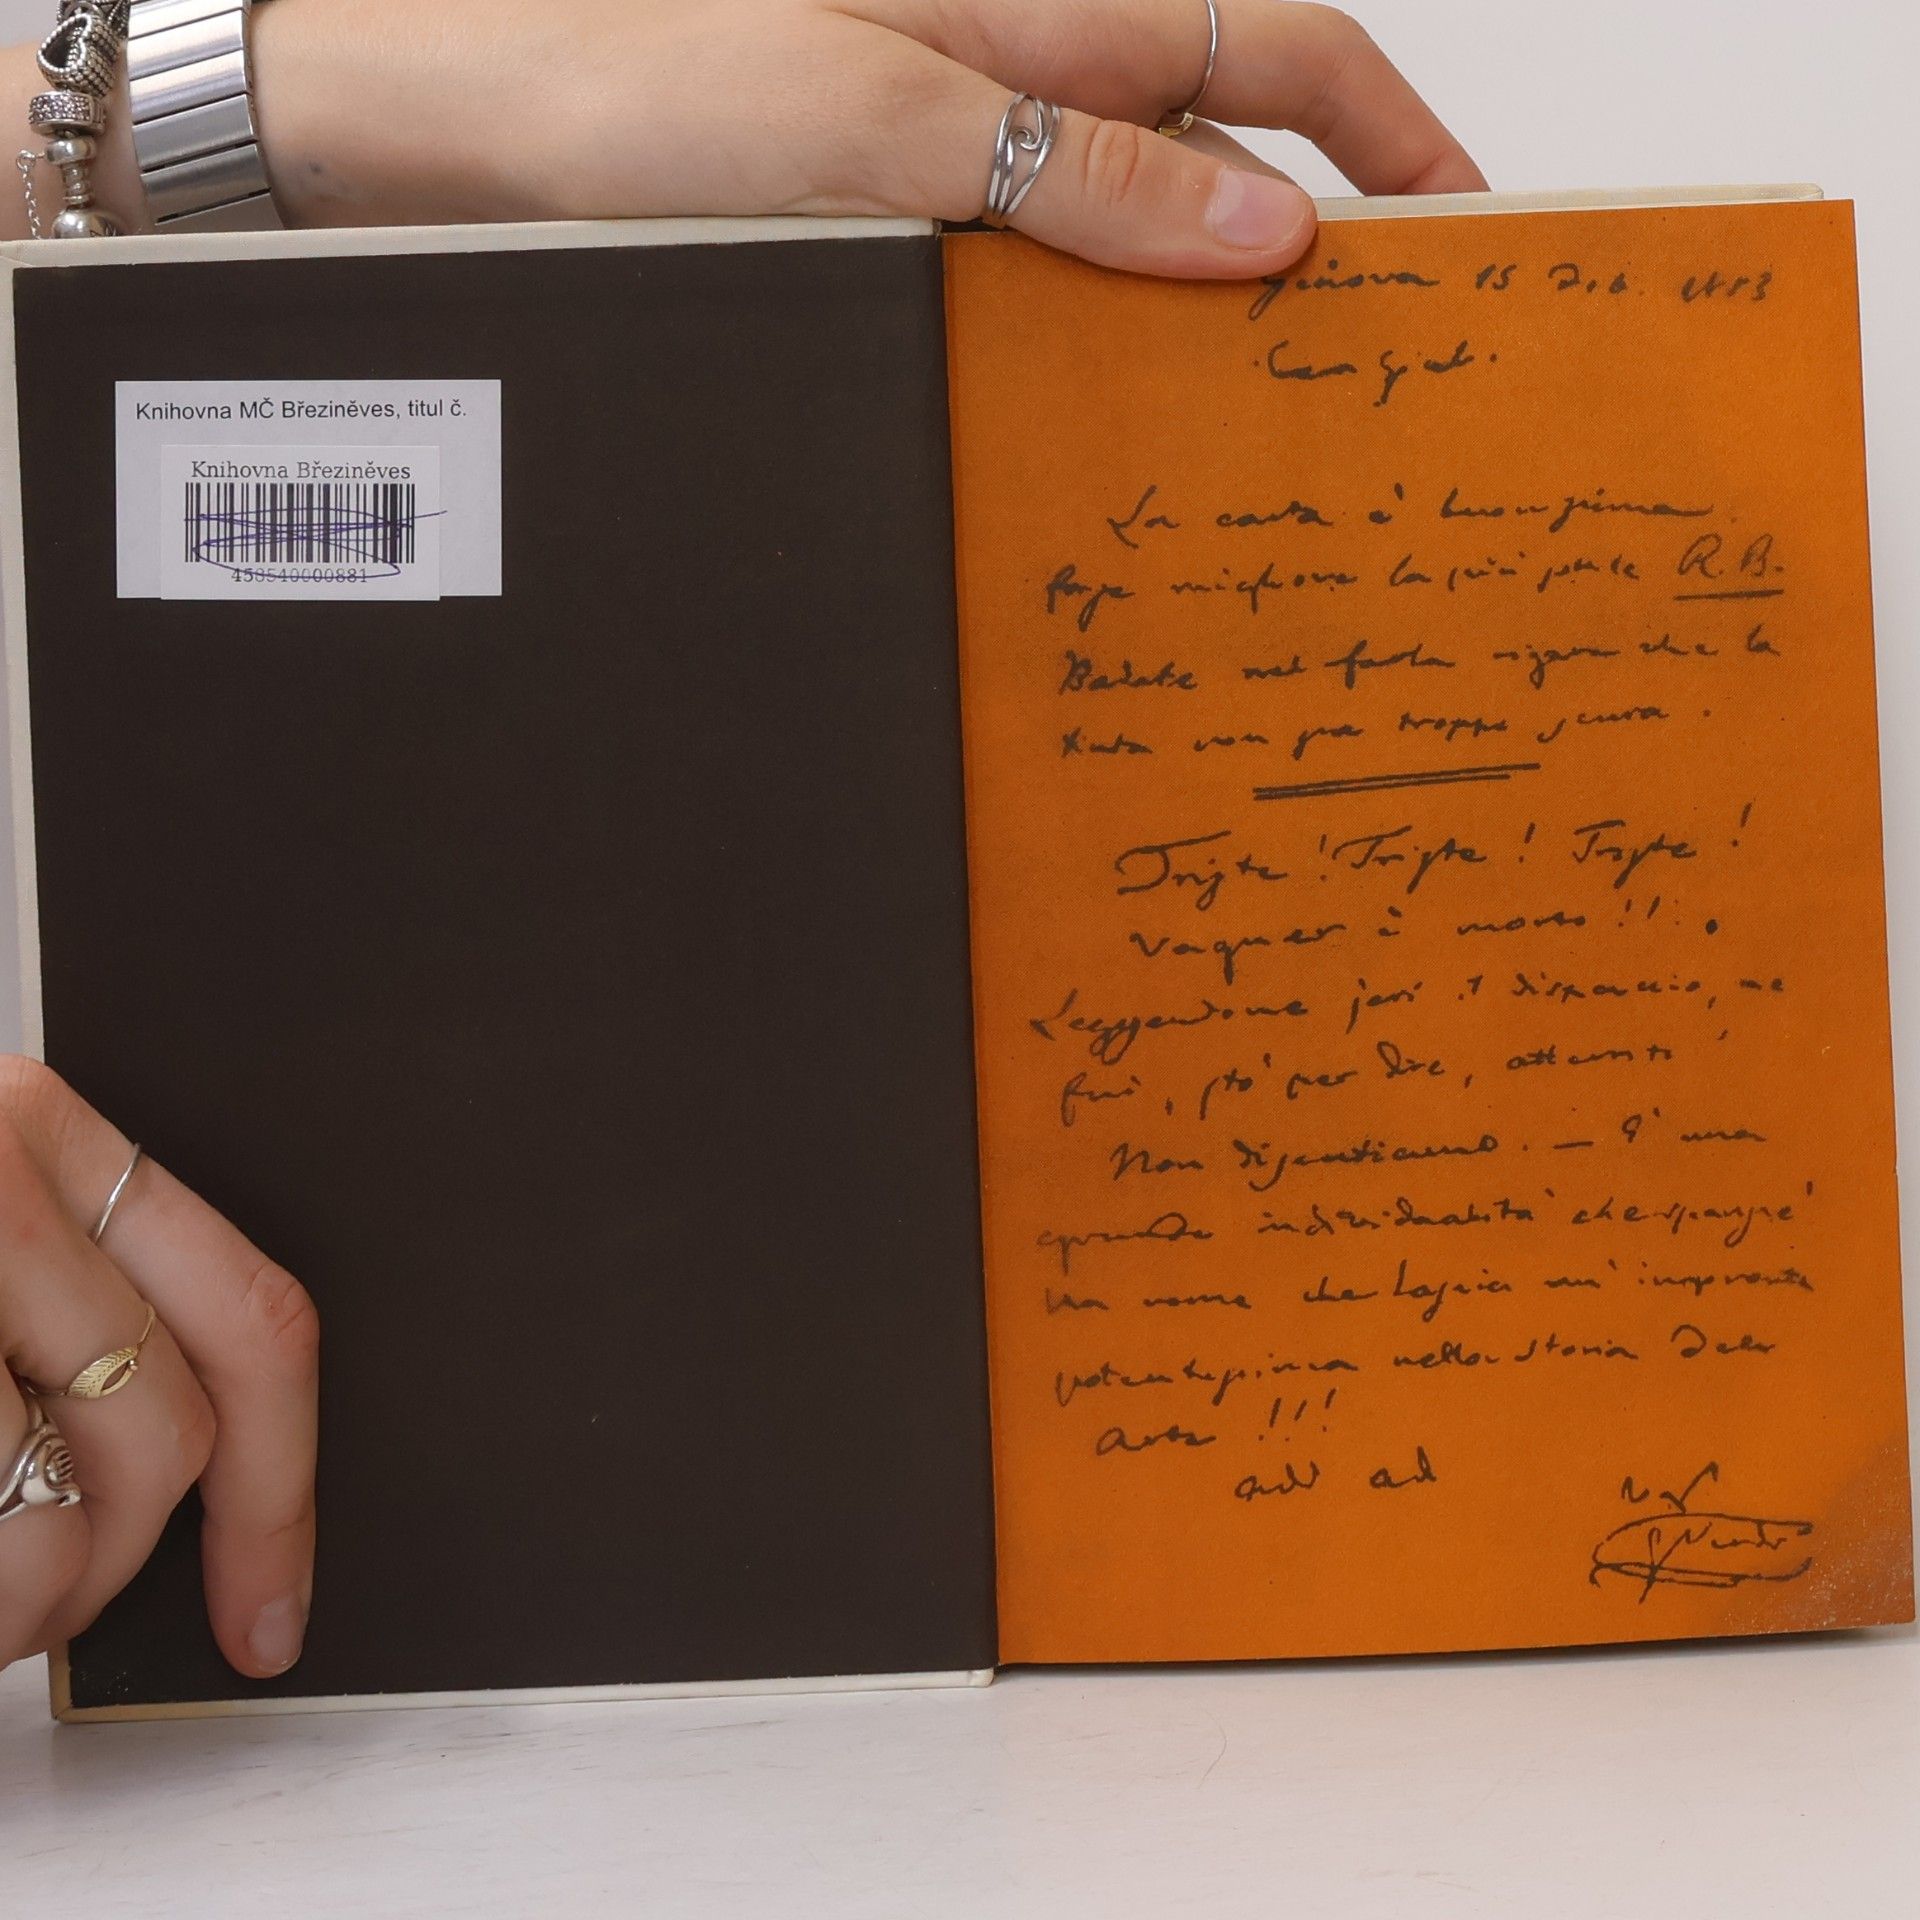 Knihovna MČ Březiněves, titul č.
Knihovna Březiněves
458540000881
Genova 15 1883
La carta è buonissima
forse migliore la più R.B.
Badate nel farla rigare che la
tinta non sia troppo scura.
Triste! Triste! Triste!
Vagner è morto!!!
Leggendone jeri il dispaccio, ne
fui, stò per dire, atterrito!
Non discutiamo. — È una
grande individualità che sparisce!
Un nome che lascia un' impronta
potentissima nella storia dell
arte!!!
ad ad
G Verdi